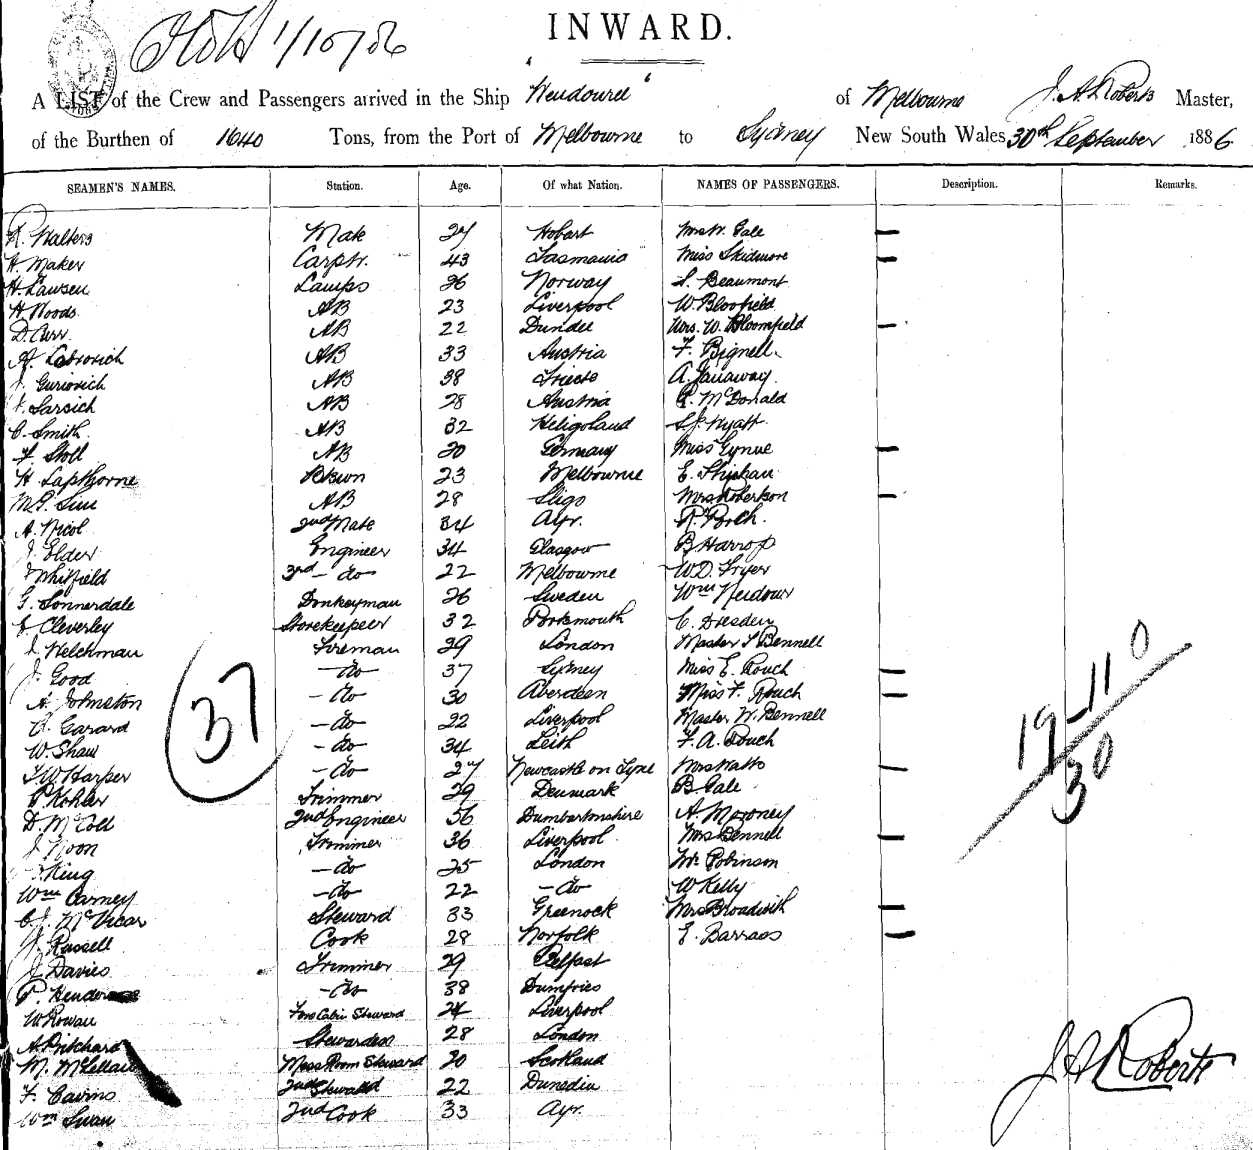 INWARD.
1/10/86
A LIST of the Crew and Passengers arrived in the Ship "Wendouree" of Melbourne J. A. Roberts Master,
of the Burthen of 1640 Tons, from the Port of Melbourne to Sydney New South Wales, 30th September 1886
SEAMEN'S NAMES. Station. Age. Of what Nation. NAMES OF PASSENGERS. Description. Remarks.
R. Walters Mate 27 Hobart Mrs W. Gale —
H. Maker Carptr. 43 Tasmania Miss Skidmore —
H. Lawsen Lamps 26 Norway S. Beaumont
H Woods AB 23 Liverpool W. Bloofield
D. Curr AB 22 Dundee Mrs. W. Bloomfield —
AB 33 Austria F. Bignell
Guriovich AB 38 Trieste A. Janaway
Sarsich AB 28 Austria McDonald
C. Smith AB 32 Heligoland S. J. Wyatt
F Stoll AB 20 Germany Miss Lynne —
H Lapthorne 23 Melbourne E.
AB 28 Sligo Mrs Robertson —
A. Nicol 2nd Mate 34 Ayr. R. Porch
J. Elder Engineer 34 Glasgow B Harrop
J Whitfield 3rd — do 22 Melbourne W. D. Fryer
G. Sonnerdale Donkeyman 26 Sweden Wm
E Cleverley Storekeeper 32 Portsmouth C. Dresden
J. Welchman Fireman 29 London Master T Bennell
J. Good — do 37 Sydney Miss E. Rouch —
A. Johnston — do 30 Aberdeen Miss F. Rouch —
C. Garard — do 22 Liverpool Master W. Bennell
W Shaw — do 34 Leith F. A. Rouch
J W Harper — do 27 Newcastle on Tyne Mrs Watts —
P. Kohler Trimmer 29 Denmark B. Gale
D. McColl 2nd Engineer 36 Dumbartonshire A. Moroney
J Noon Trimmer 36 Liverpool Mrs Bennell —
King — do 25 London Mr Robinson
Wm Carney — do 22 — do W Kelly
C. J. McVicar Steward 33 Greenock Mrs Broadwith —
J. Russell Cook 28 Norfolk E. Barrass —
J Davies Trimmer 29 Belfast
P. — do 38 Dumfries
W Rowan Fore Cabin Steward 24 Liverpool
A Pritchard Stewardess 28 London
M. McLellan Mess Room Steward 20 Scotland
F. Cavins 2nd Steward 22 Dunedin
Wm Swan 2nd Cook 33 Ayr.
37
19-11-0
30
J A Roberts